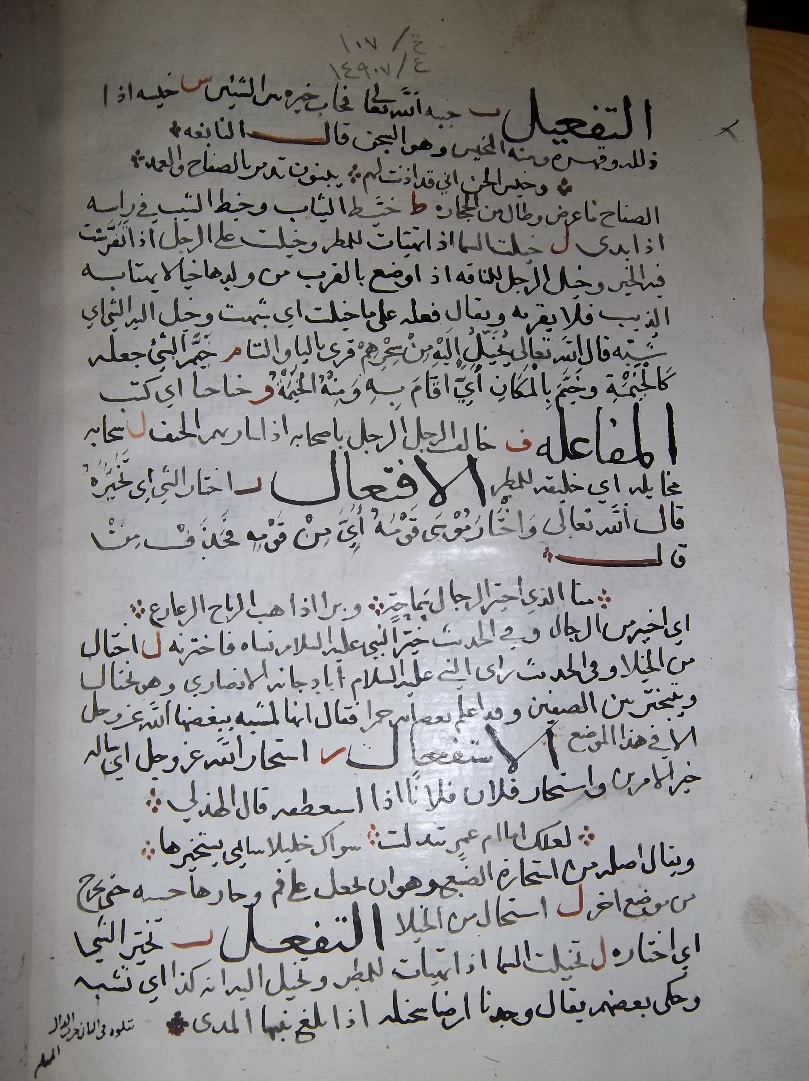 خ / ١٠٧
٤ / ١٤٩٠٧
التفعيل ب خيبه الله تعالى فخاب خيره بين الشيئين س خيسه اذا
ذلله ومنه المخيس وهو السجن قال النابغه
وخيس الجن انى قد اذنت لهم يبنون تدمر بالصفاح والعمد
الصفاح ما عرض وطال من الحجاره ط خيط الثياب وخيط الشيب في راسه
اذا بدى ل خيلت السما اذا تهيات للمطر وخيلت على الرجل اذا تفرست
فيه الخير وخيل الرجل للناقه اذا وضع بالقرب من ولدها خيالا يهتابه
الذيب فلا يقربه ويقال فعله على ما خيلت اي شبهت وخيل اليه الشي اي
شبه قال الله تعالى يخيل اليه من سحرهم قرى باليا والتا م خيم الشي جعله
كالخيمة وخيم بالمكان اي اقام به ومنه الخيمة
المفاعله ف خالف الرجل الرجل باصحابه ل سحابه
مخايله اي خليقه للمطر الافتعال ر اختار الشي اي تخيره
قال الله تعالى واختار موسى قومه اي من قومه فحذف من
قال
منا الذي اختير الرجال سماحة وبرا اذا هب الرياح الزعازع
اي اختير من الرجال وفي الحديث خير النبي عليه السلام نساه فاخترنه ل اختال
من الخيلا وفي الحديث راى النبي عليه السلام ابا دجانه الانصاري وهو يختال
ويتبختر بين الصفين وقد اعلم بعصابه حمرا فقال انها لمشيه يبغضها الله عز وجل
الا في هذا الموضع الاستفعال ر استخار الله عز وجل اي ساله
خير الامرين واستخار فلان فلانا اذا استعطفه قال الهذلي
لعلك اما ام عمرو تبدلت سواك خليلا شاتمي تستخيرها
ويقال اصله من استخارة الضبع وهو ان يجعل على فم وجارها خشبه حتى تخرج
من موضع اخر ل استخال من الخيلا التفعل ر تخير الشي
اي اختاره ل تخيلت السما اذا تهيات للمطر وتخيل اليه انه كذا اي تشبه
وحكى بعضهم يقال وجدنا ارضا متخيله اذا بلغ نبتها المدى